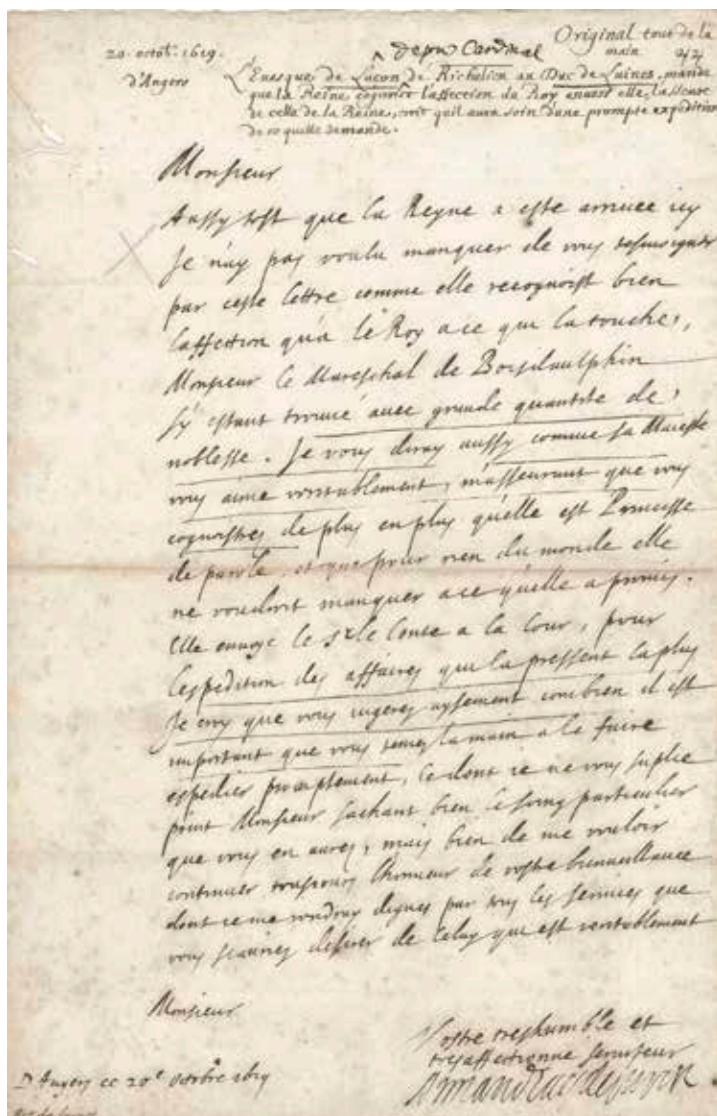 20. octob. 1619.
d'Angers
depuis Cardinal
Original tout de la
main 42
L'Euesque de Luçon de Richelieu au Duc de Luines, mande
que la Reine cognoist l'affection du Roy enuers elle, l'asseure
de celle de la Reine, croit quil aura soin d'une prompte expedition
de ce quelle demande.
Monsieur
Aussy tost que la Reyne a esté arriuee icy
Je n'ay pas voulu manquer de vous tesmoigner
par ceste lettre comme elle recognoist bien
l'affection qu'a le Roy a ce qui la touche,
Monsieur le Mareschal de Boisdaulphin
s'y estant trouué auec grande quantité de
noblesse. Je vous diray aussy comme sa Maiesté
vous aime veritablement, m'asseurant que vous
cognoistres de plus en plus qu'elle est Princesse
de parole, et que pour rien du monde elle
ne voudroit manquer a ce qu'elle a promis.
Elle enuoye le Sr le Conte a la Cour, pour
l'espedition des affaires qui la pressent le plus
Je croy que vous iugeres aysement combien il est
important que vous tenies la main a le faire
espedier promptement, ce dont ie ne vous suplie
point Monsieur sachant bien le soing particulier
que vous en aures, mais bien de me vouloir
continuer tousiours l'honneur de vostre bienueillance
dont ie me rendray digne par tous les seruices que
vous scauries desirer de celuy qui est veritablement
Monsieur
Vostre treshumble et
tresaffectionné seruiteur
Armand Eue. de Luçon
D'Angers ce 20e octobre 1619